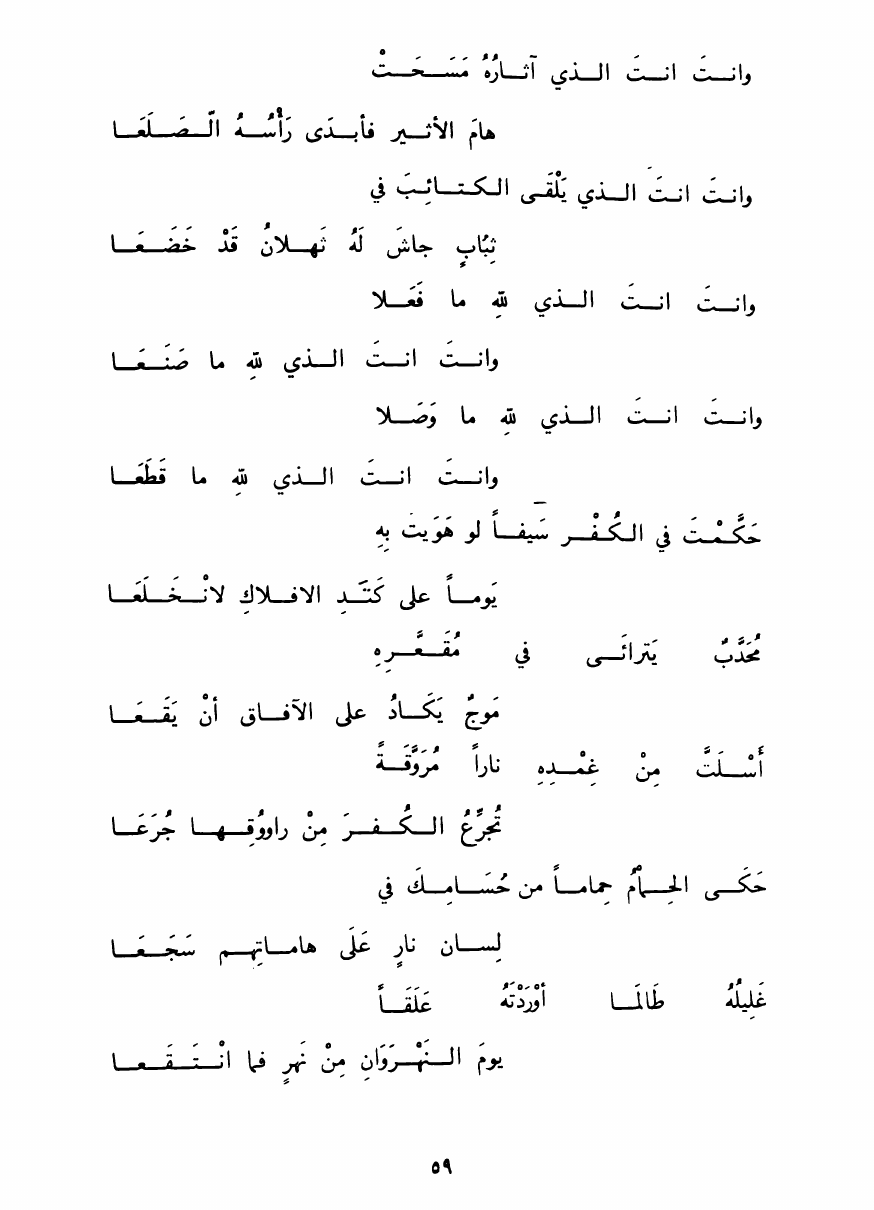 وانتَ انتَ الذي آثارُهُ مَسَحَتْ
هامَ الأثير فأبدَى رَأْسُهُ الصَلَعَا
وانتَ انتَ الذي يَلْقَى الكتائِبَ في
ثِبُاتٍ جاشَ لَهُ ثَهلانُ قَدْ خَضَعَا
وانتَ انتَ الذي للهِ ما فَعَلا
وانتَ انتَ الذي للهِ ما صَنَعَا
وانتَ انتَ الذي للهِ ما وَصَلا
وانتَ انتَ الذي للهِ ما قَطَعَا
حَكَّمْتَ في الكُفْرِ سَيفاً لو هَوَيتَ بِهِ
يَوماً على كَتَدِ الافلاكِ لانْخَلَعَا
مُحَدَّبٌ يَترائَى في مُقَعَّرِهِ
مَوجٌ يَكَادُ على الآفاقِ أنْ يَقَعَا
أَسْلَتَّ مِنْ غِمْدِهِ ناراً مُرَوَّقَةً
تُجَرِّعُ الكُفرَ مِنْ راووُقِها جُرَعَا
حَكَى الحِمامُ حِماماً من حُسَامِكَ في
لِسان نارٍ عَلَى هاماتِهم سَجَعَا
غَليلُهُ طَالمَا أوْرَدْتَهُ عَلَقاً
يومَ النَهْرَوَانِ مِنْ نَهرٍ فما انْتَقَعا
٥٩